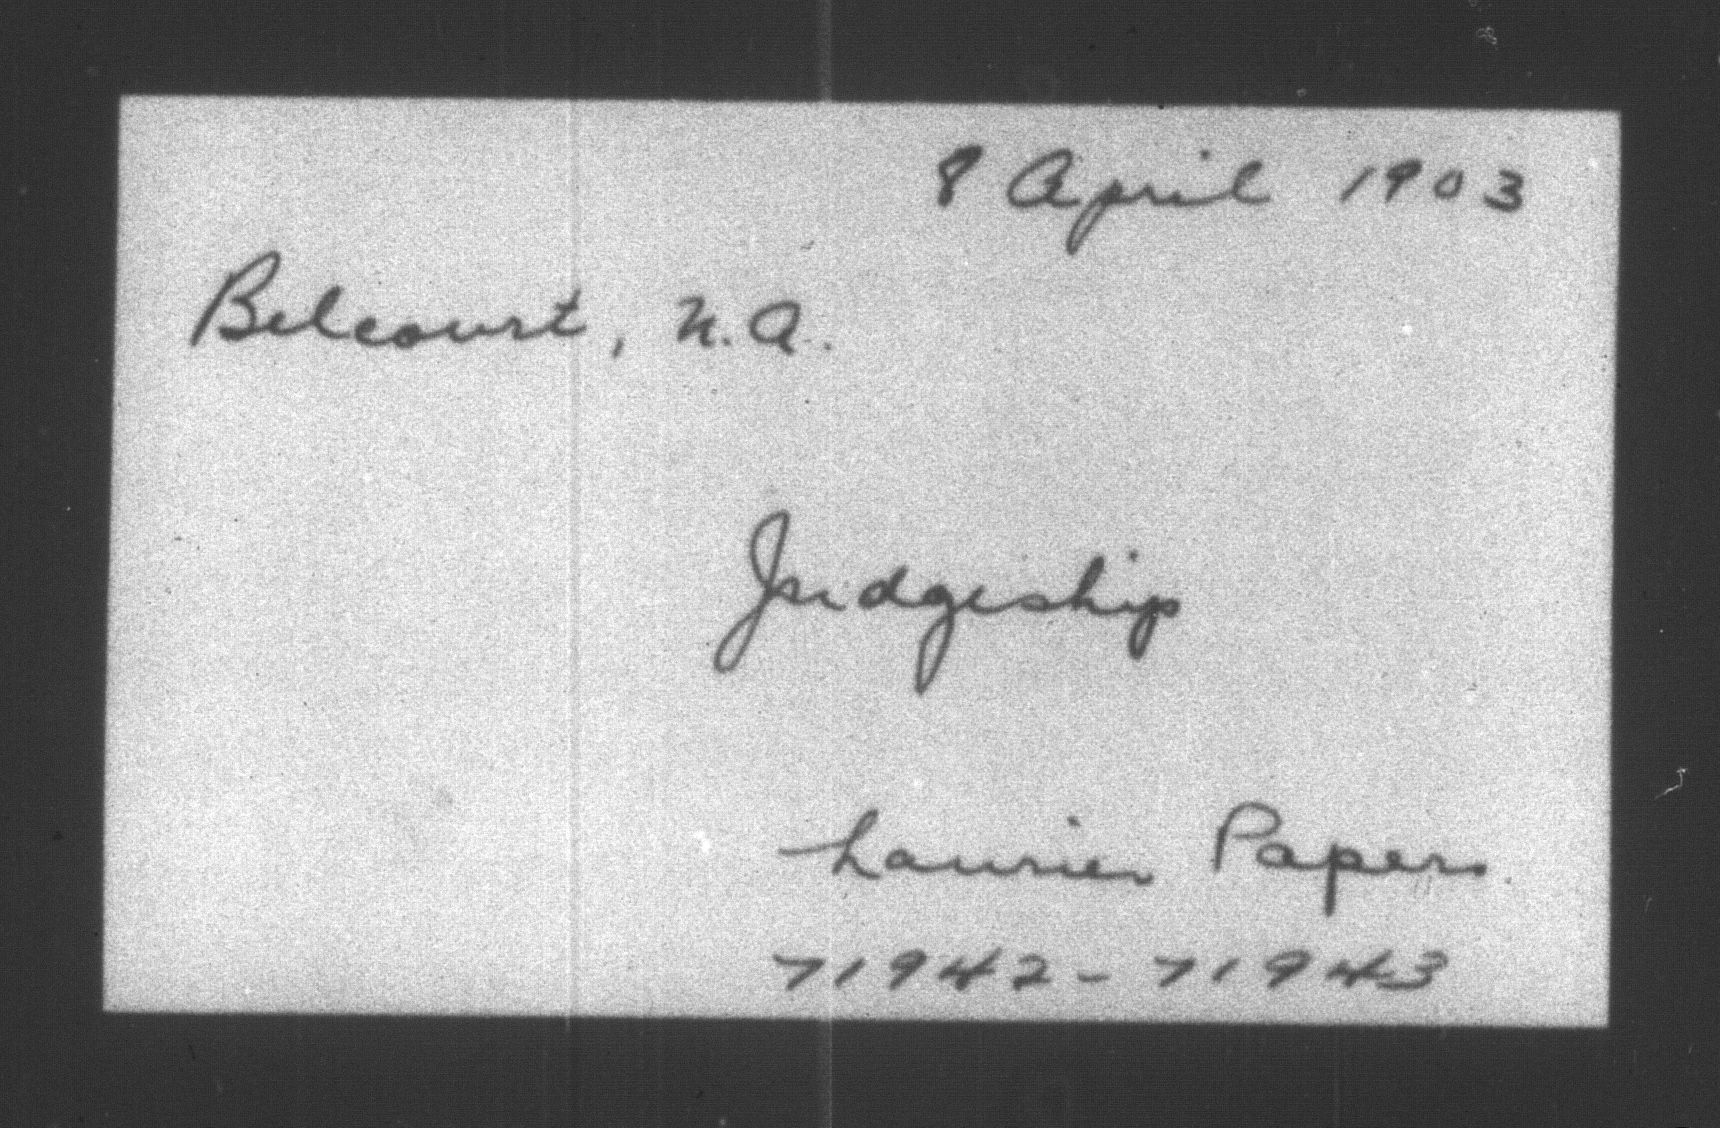 8 April 1903
Belcourt, N.A.
Judgeship
Laurier Papers
71942-71943